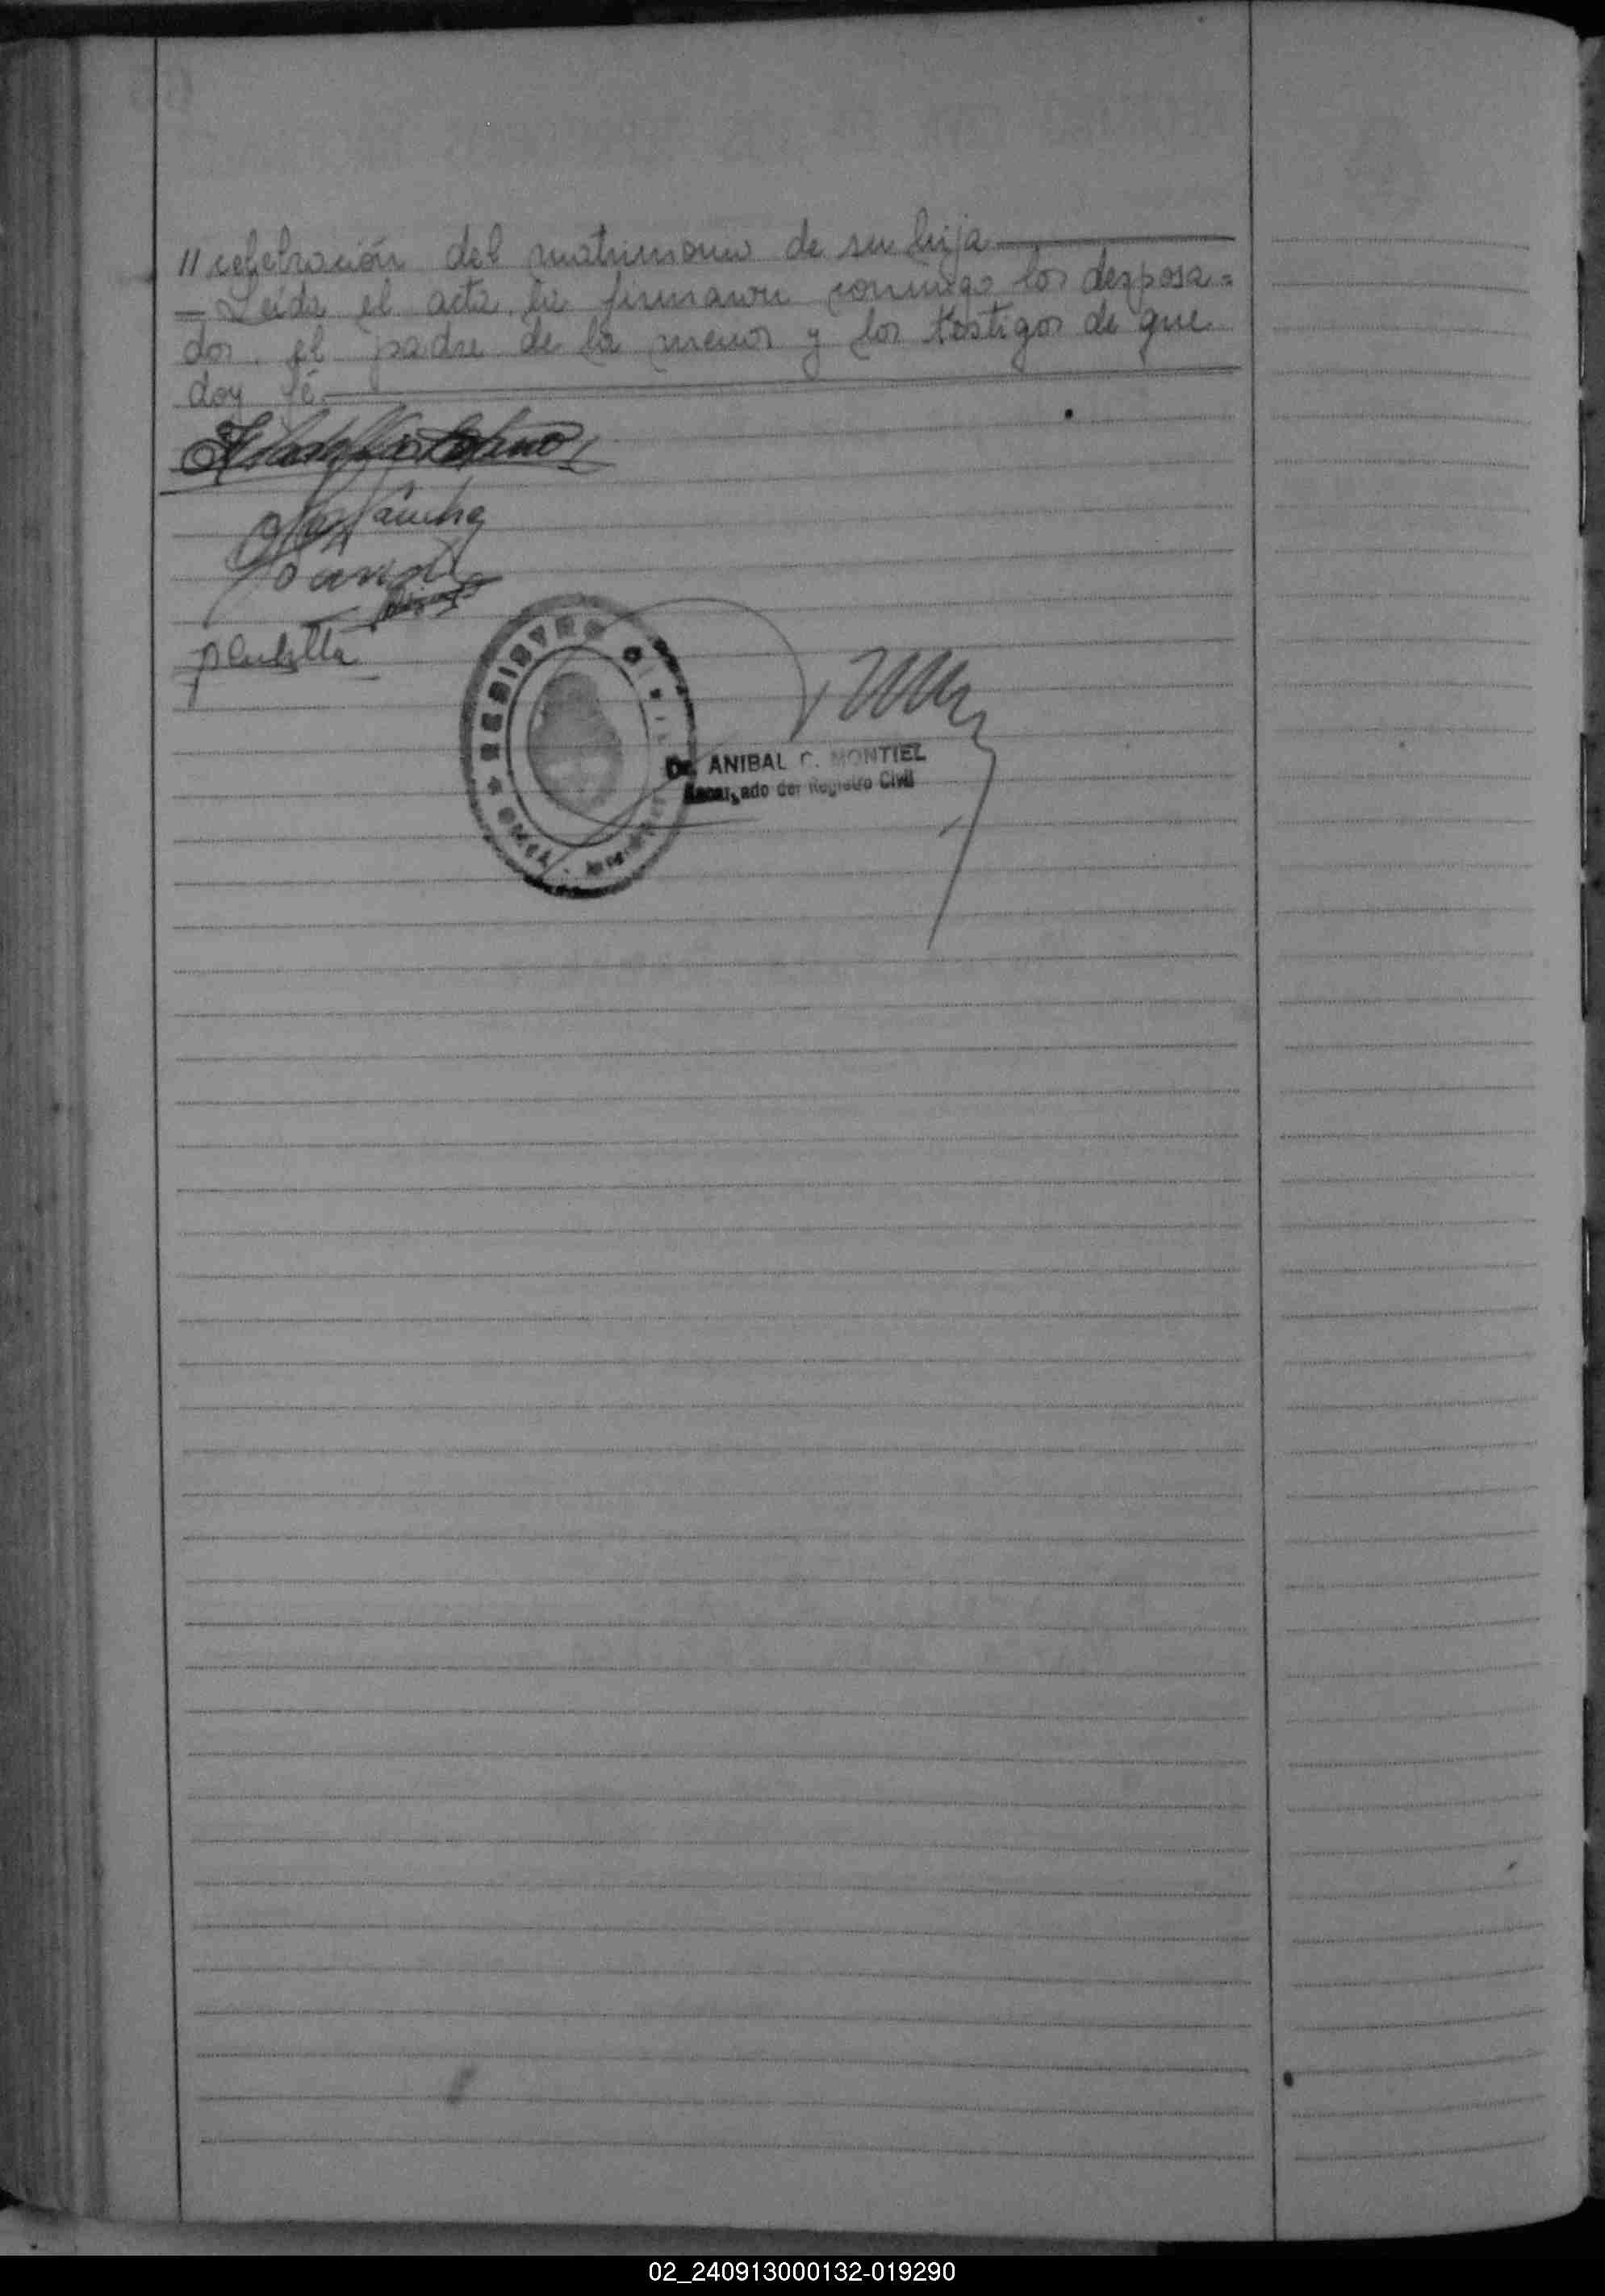 " celebración del matrimonio de su hija
= Leída el acta, la firmaron conmigo los desposa=
dos, el padre de la menor y los testigos de que
doy fé.
Sánchez
REGISTRO CIVIL
Dr. ANIBAL C. MONTIEL
Encargado del Registro Civil
02_240913000132-019290